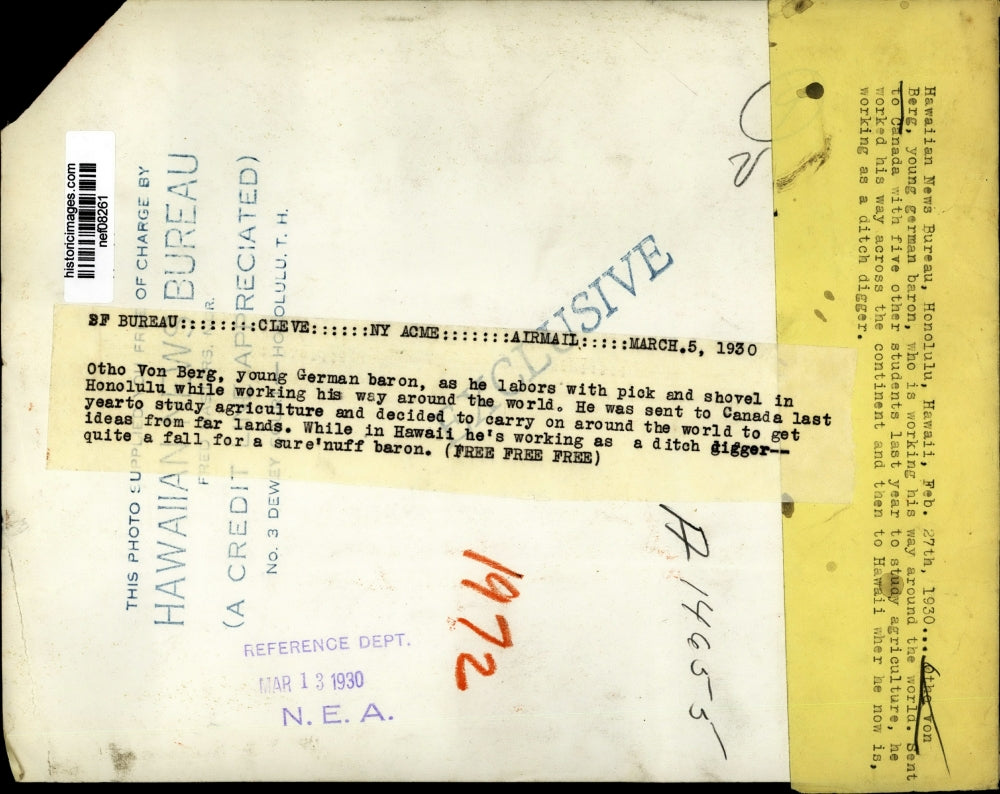 historicimages.com
nef08261
THIS PHOTO SUPPLIED FREE OF CHARGE BY
HAWAIIAN NEWS BUREAU
(A CREDIT APPRECIATED)
No. 3 DEWEY HONOLULU. T. H.
EXCLUSIVE
SF BUREAU::::::::CLEVE::::::NY ACME:::::::AIRMAIL:::::MARCH.5, 1930
Otho Von Berg, young German baron, as he labors with pick and shovel in
Honolulu while working his way around the world. He was sent to Canada last
yearto study agriculture and decided to carry on around the world to get
ideas from far lands. While in Hawaii he's working as a ditch digger--
quite a fall for a sure'nuff baron. (FREE FREE FREE)
1972
A 14655
REFERENCE DEPT.
MAR 13 1930
N. E. A.
Hawaiian News Bureau, Honolulu, Hawaii, Feb. 27th, 1930... Otho Von
Berg, young german baron, who is working his way around the world. Sent
to Canada with five other students last year to study agriculture, he
worked his way across the continent and then to Hawaii wher he now is,
working as a ditch digger.